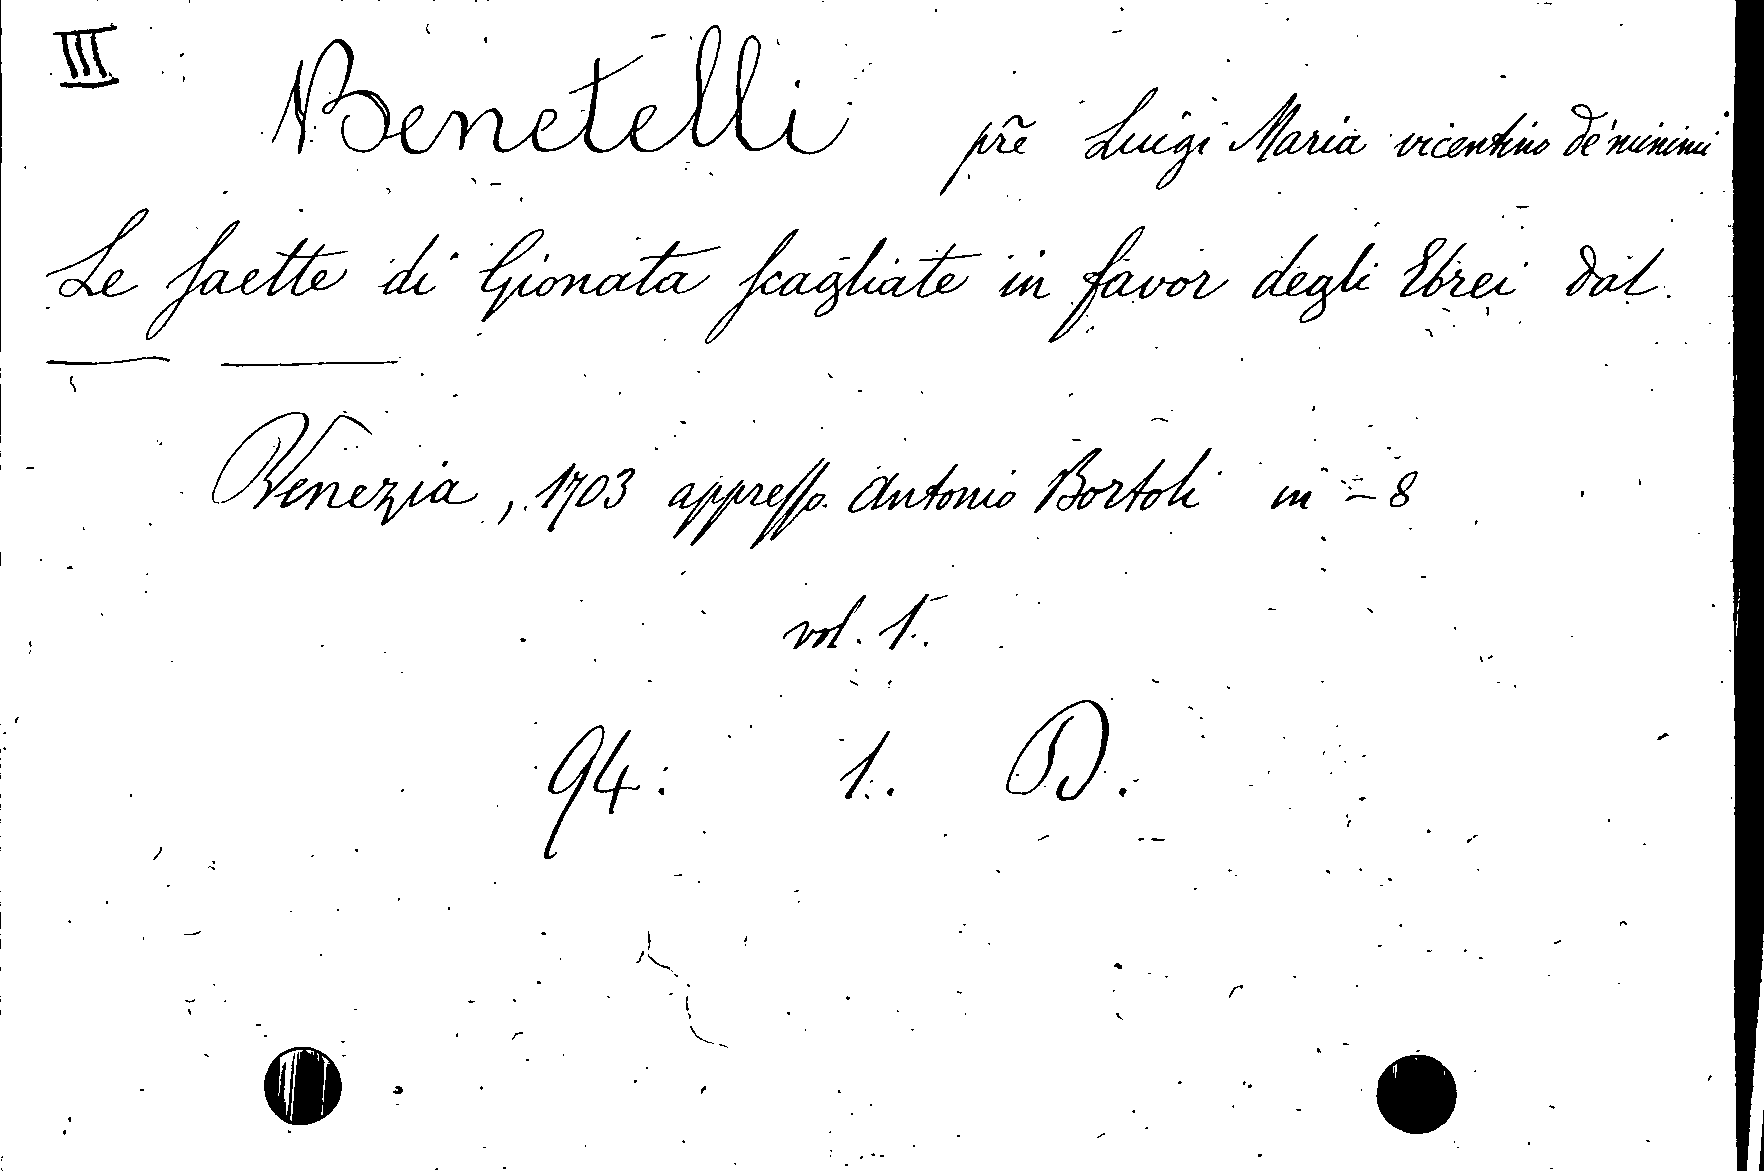 III
Benetelli pr̃e Luigi Maria vicentino de' minimi
Le saette di Gionata scagliate in favor degli Ebrei dal
Venezia, 1703 appresso Antonio Bortoli in - 8
vol. 1.
94. 1. D.